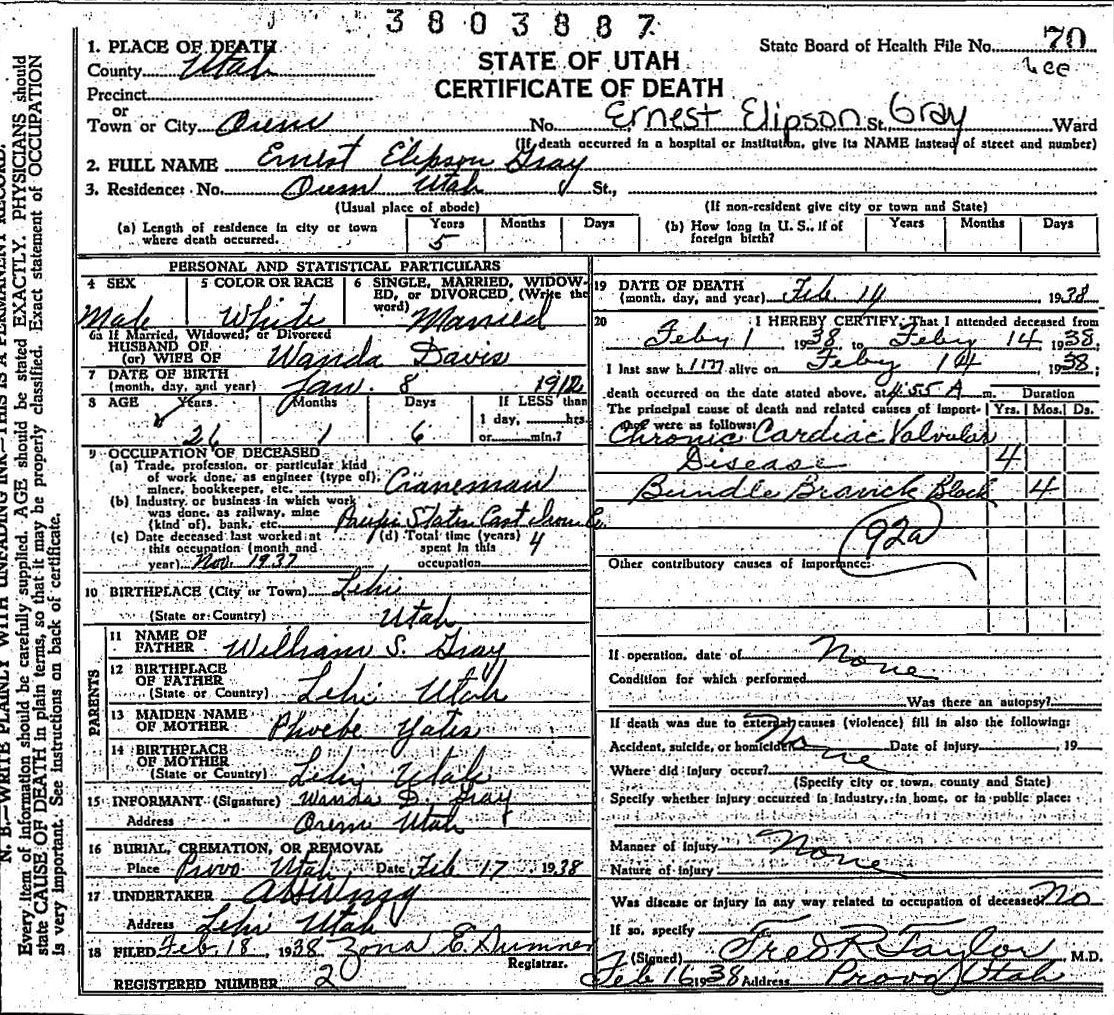 3803887
1. PLACE OF DEATH
County Utah
STATE OF UTAH
CERTIFICATE OF DEATH
State Board of Health File No. 70
Precinct
or
Town or City Orem No. Ernest Elipson St. Gray Ward
(If death occurred in a hospital or institution, give its NAME instead of street and number)
2. FULL NAME Ernest Elipson Gray
3. Residences No. Orem Utah St.,
(Usual place of abode) (If non-resident give city or town and State)
(a) Length of residence in city or town where death occurred. Years 5 Months Days
(b) How long in U. S., if of foreign birth? Years Months Days
PERSONAL AND STATISTICAL PARTICULARS
4 SEX
Male
5 COLOR OR RACE
White
6 SINGLE, MARRIED, WIDOW-
ED, or DIVORCED (Write the
word) Married
6a If Married, Widowed, or Divorced
HUSBAND OF
(or) WIFE OF Wanda Davis
7 DATE OF BIRTH
(month, day, and year) Jan. 8 1912
8 AGE Years Months Days If LESS than
1 day, hrs.
26 1 6 or min.?
9 OCCUPATION OF DECEASED
(a) Trade, profession, or particular kind
of work done, as engineer (type of),
miner, bookkeeper, etc. Craneman
(b) Industry or business in which work
was done, as railway, mine
(kind of), bank, etc. Pacific States Cast Iron Co
(c) Date deceased last worked at
this occupation (month and
year) Nov. 1937
(d) Total time (years) 4
spent in this
occupation
10 BIRTHPLACE (City or Town) Lehi
(State or Country) Utah
PARENTS
11 NAME OF
FATHER William S. Gray
12 BIRTHPLACE
OF FATHER
(State or Country) Lehi Utah
13 MAIDEN NAME
OF MOTHER Phoebe Yates
14 BIRTHPLACE
OF MOTHER
(State or Country) Lehi Utah
15 INFORMANT (Signature) Wanda D. Gray
Address Orem Utah
16 BURIAL, CREMATION, OR REMOVAL
Place Provo Utah Date Feb 17 1938
17 UNDERTAKER
Address Lehi Utah
18 FILED Feb. 18, 1938 Zona E. Sumner
Registrar.
REGISTERED NUMBER 20
19 DATE OF DEATH
(month, day, and year) Feb 14 1938
20 I HEREBY CERTIFY, That I attended deceased from
Feby 1, 1938, to Feby 14, 1938,
I last saw him alive on Feby 14 1938;
death occurred on the date stated above, at 4:55 A m. Duration
The principal cause of death and related causes of import- Yrs. Mos. Ds.
ance were as follows:
Chronic Cardiac Valvular
Disease 4
Bundle Branck Block 4
92a
Other contributory causes of importance:
If operation, date of None
Condition for which performed
Was there an autopsy?
If death was due to external causes (violence) fill in also the following:
Accident, suicide, or homicide None Date of injury 19
Where did injury occur?
(Specify city or town, county and State)
Specify whether injury occurred in industry, in home, or in public place:
Manner of injury None
Nature of injury
Was disease or injury in any way related to occupation of deceased? No
If so, specify
(Signed) Fred R Taylor, M.D.
Feb 16 1938 Address Provo Utah
N. B.—WRITE PLAINLY WITH UNFADING INK—THIS IS A PERMANENT RECORD.
Every item of information should be carefully supplied. AGE should be stated EXACTLY. PHYSICIANS should
state CAUSE OF DEATH in plain terms, so that it may be properly classified. Exact statement of OCCUPATION
is very important. See instructions on back of certificate.